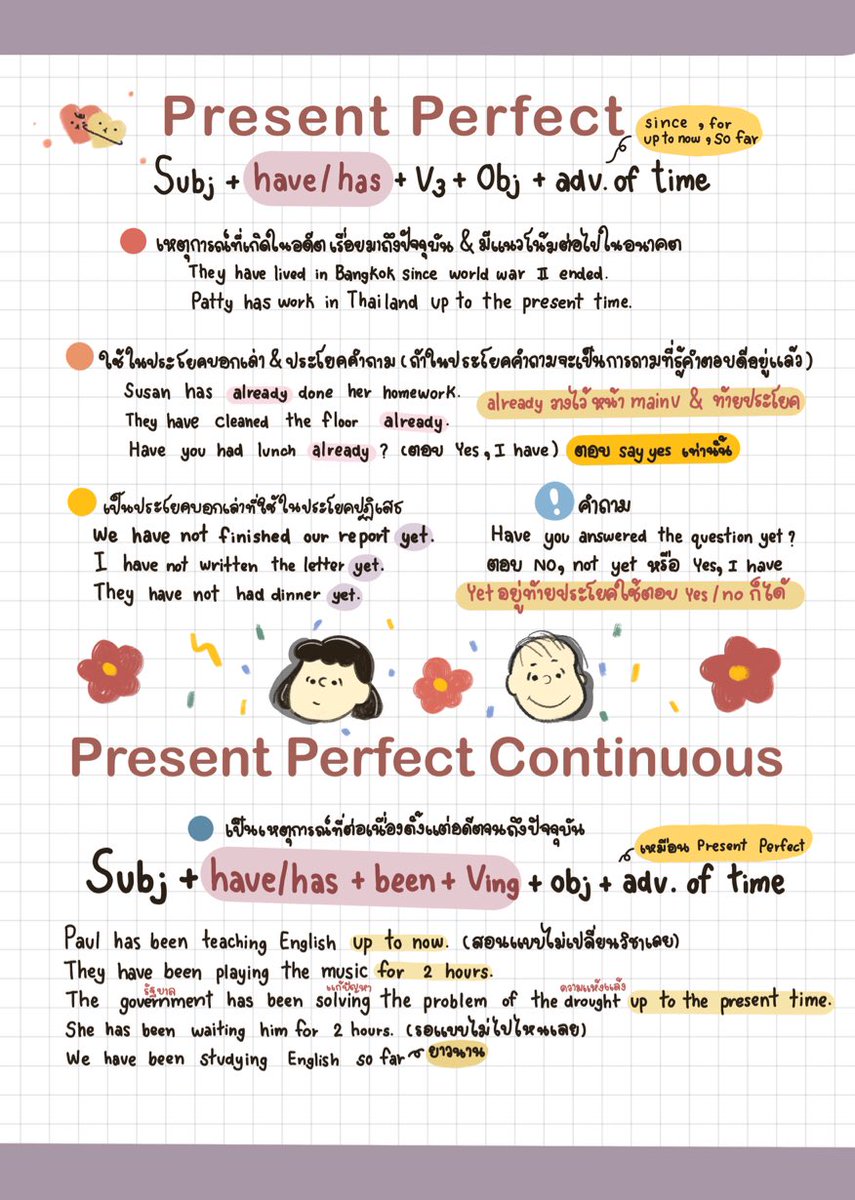 Present Perfect
since , for
up to now , so far
Subj + have/has + V3 + Obj + adv. of time
เหตุการณ์ที่เกิดในอดีต เรื่อยมาถึงปัจจุบัน & มีแนวโน้มต่อไปในอนาคต
They have lived in Bangkok since world war II ended.
Patty has work in Thailand up to the present time.
ใช้ในประโยคบอกเล่า & ประโยคคำถาม (ถ้าในประโยคคำถามจะเป็นการถามที่รู้คำตอบดีอยู่แล้ว)
Susan has already done her homework.
already วางไว้ หน้า mainv & ท้ายประโยค
They have cleaned the floor already.
Have you had lunch already ? (ตอบ Yes, I have) ตอบ say yes เท่านั้น
เป็นประโยคบอกเล่าที่ใช้ในประโยคปฏิเสธ
We have not finished our report yet.
I have not written the letter yet.
They have not had dinner yet.
! คำถาม
Have you answered the question yet ?
ตอบ NO, not yet หรือ Yes, I have
Yet อยู่ท้ายประโยคใช้ตอบ Yes/no ก็ได้
Present Perfect Continuous
เป็นเหตุการณ์ที่ต่อเนื่องตั้งแต่อดีตจนถึงปัจจุบัน
เหมือน Present Perfect
Subj + have/has + been + Ving + obj + adv. of time
Paul has been teaching English up to now. (สอนแบบไม่เปลี่ยนวิชาเลย)
They have been playing the music for 2 hours.
รัฐบาล แก้ปัญหา ความแห้งแล้ง
The government has been solving the problem of the drought up to the present time.
She has been waiting him for 2 hours. (รอแบบไม่ไปไหนเลย)
We have been studying English so far ยาวนาน